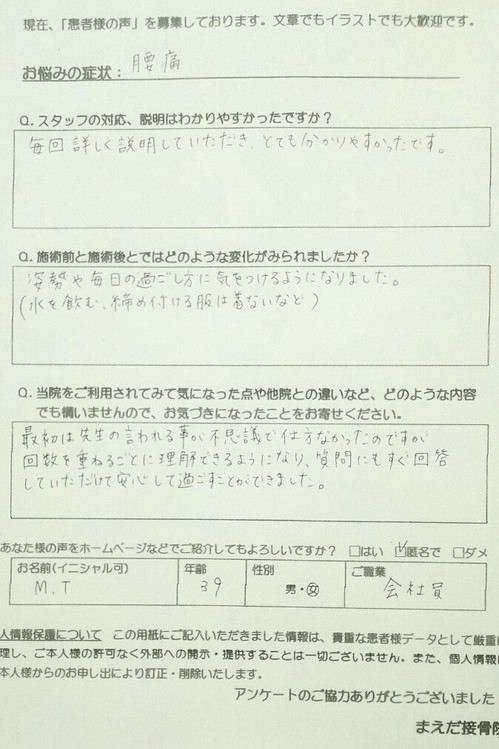 現在、「患者様の声」を募集しております。文章でもイラストでも大歓迎です。
お悩みの症状： 腰痛
Q. スタッフの対応、説明はわかりやすかったですか？
毎回詳しく説明していただき、とても分かりやすかったです。
Q. 施術前と施術後とではどのような変化がみられましたか？
姿勢や毎日の過ごし方に気をつけるようになりました。
(水を飲む、締め付ける服は着ないなど)
Q. 当院をご利用されてみて気になった点や他院との違いなど、どのような内容
でも構いませんので、お気づきになったことをお寄せください。
最初は先生の言われる事が不思議で仕方なかったのですが
回数を重ねるごとに理解できるようになり、質問にもすぐ回答
していただけて安心して過ごすことができました。
あなた様の声をホームページなどでご紹介してもよろしいですか？ □はい ☑匿名で □ダメ
お名前(イニシャル可) 年齢 性別 ご職業
M.T 39 男・女 会社員
人情報保護について この用紙にご記入いただきました情報は、貴重な患者様データとして厳重に
理し、ご本人様の許可なく外部への開示・提供することは一切ございません。また、個人情報は
本人様からのお申し出により訂正・削除いたします。
アンケートのご協力ありがとうございました
まえだ接骨院